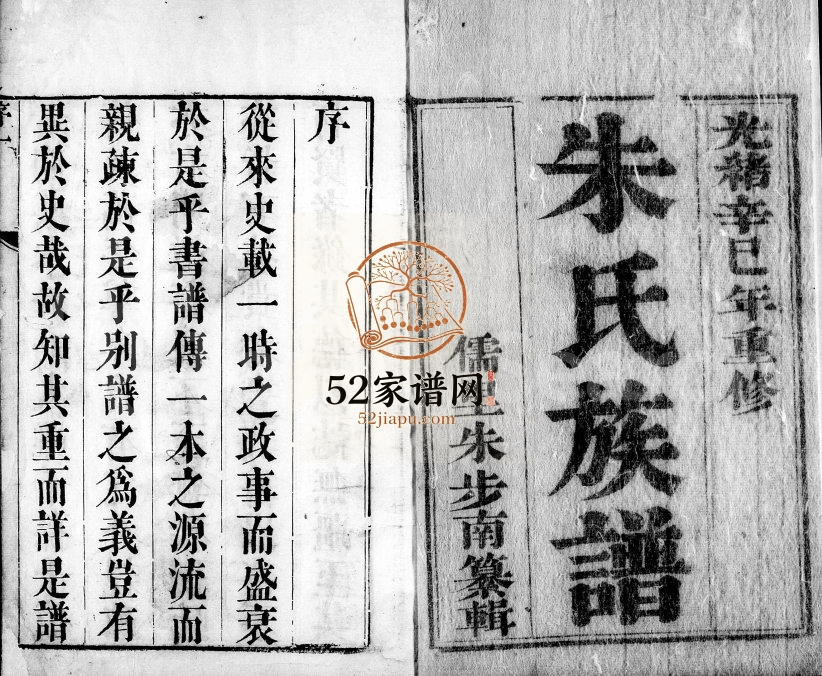 光緒辛巳年重修
朱氏族譜
儒 朱步南纂輯
序
從來史載一時之政事而盛衰
於是乎書譜傳一本之源流而
親疎於是乎别譜之為義豈有
異於史哉故知其重而詳是譜
52家谱网
52jiapu.com